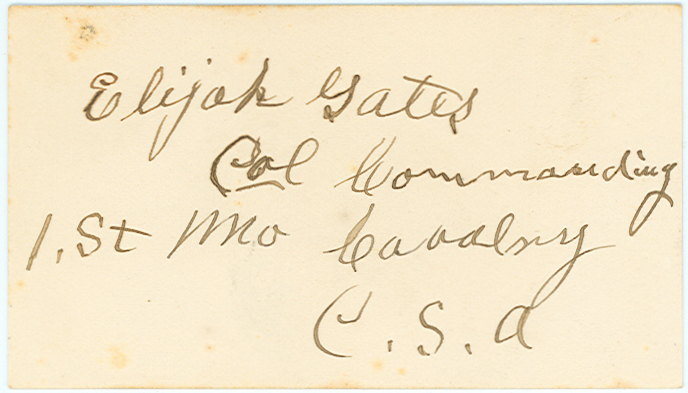 Elijah Gates
Col Commanding
1.St Mo Cavalry
C.S.A